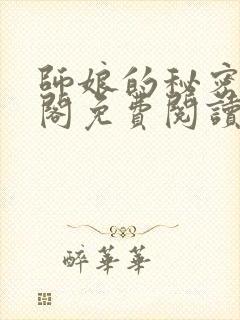 師娘的秘密
閣免費閱讀
醉華華